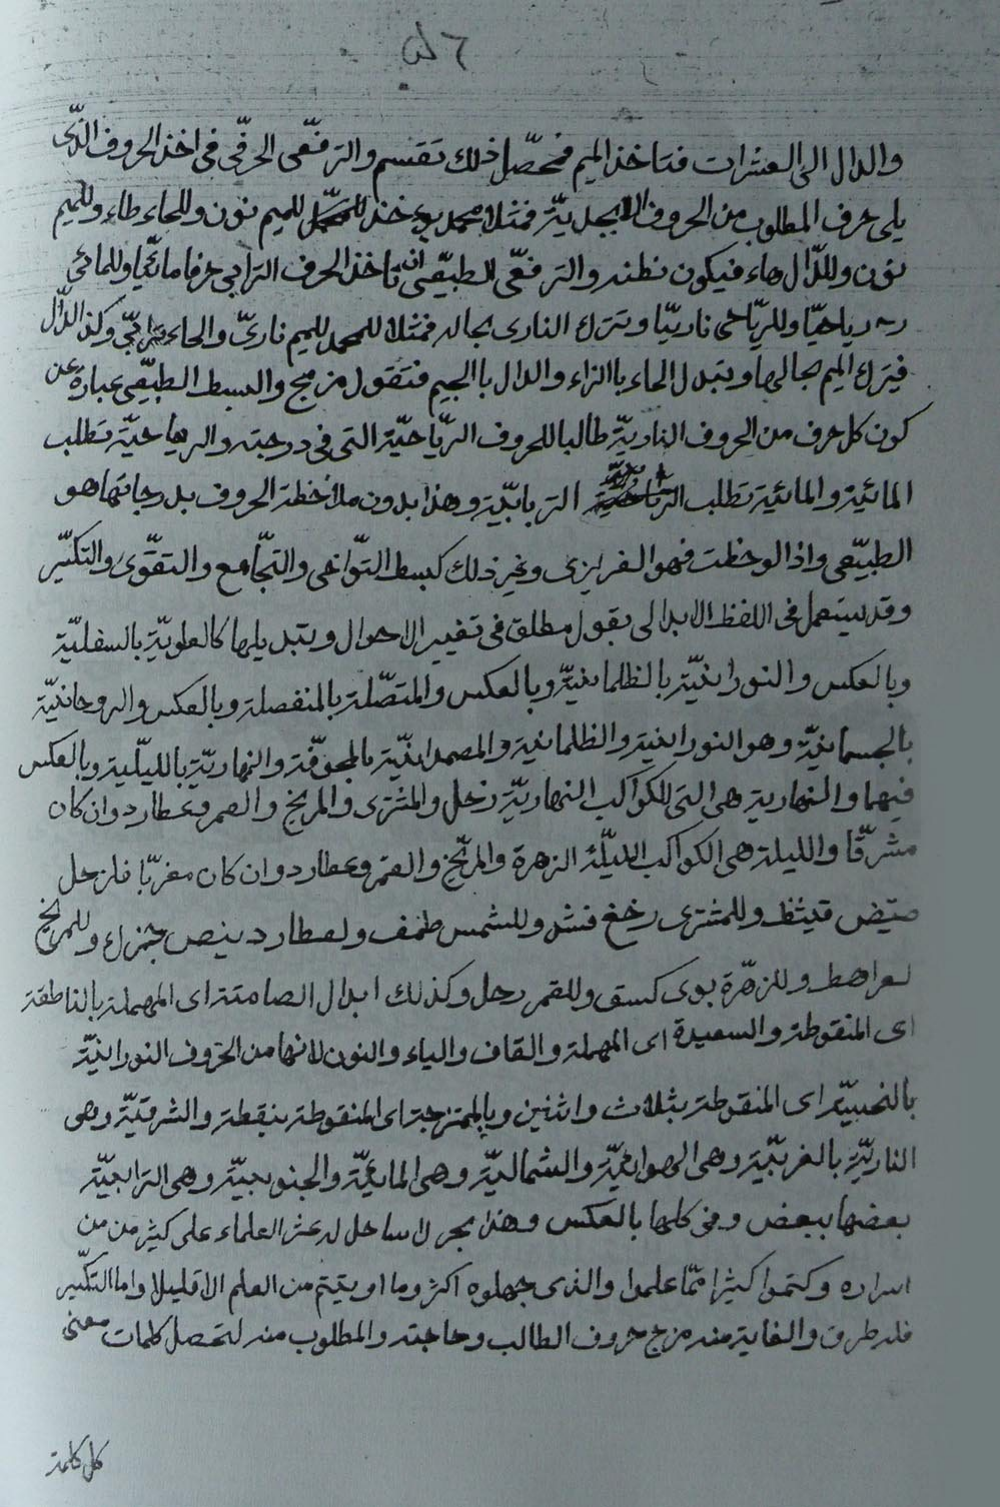 والدال الى العشرات فتاخذ الميم فحصّل ذلك تقسم والترفّعى الحرفّى فى اخذ الحروف الذّى
يلى حرف المطلوب من الحروف الابجديّة فمثلا محمد خذ للميم نون وللحاء طاء وللميم
نون وللدّال هاء فيكون نطنه والترفعّى الطبيعّى ان تاخذ الحرف الترابى حرفا مائيّا وللمائى
رياحيّا وللرّياحى ناريّا وتترك النارى بحاله فمثلا محمد للميم نارىّ والحاء ترابىّ وكذا الدّال
فيترك الميم بحالها ويتبدل الحاء باالزاء والدال باالجيم فتقول مزمج والبسط الطبيعّى عبارة عن
كون كل حرف من الحروف الناريّة طالبا للحروف الريّاحيّة التى فى درجته والرياحيّة تطلب
المائية والمائية تطلب الترابيّة وهذا بدون ملاخظة الحروف بدرجاتها هو
الطبيعّى واذا لوحظت فهو الغريزى وغير ذلك كبسط التوّاخى والتجّامع والتقوّى والتكسّير
وقد يستعمل فى اللفظ الابدالى بقول مطلق فى تغيير الاحوال وتبديلها كالعلويّة بالسفليّة
وبالعكس والنورانيّة بالظلمانيّة وبالعكس والمتصّلة بالمنفصلة وبالعكس والروحانيّة
بالجسمانيّة وهو النورانية والظلمانية والمصمدانيّة بالمجوّفة والنهاريّة بالليّلية وبالعكس
فيهما والنهارية هى التى للكواكب النهاريّة زحل والمشترى والمريخ والقمر وعطارد وان كان
مشرقّا والليلة هى الكواكب الليلّة الزهرة والمريّخ والقمر وعطارد وان كان مغربّا فلزحل
صتيض قيثظ وللمشترى رخغ فنش وللشمس طمف ولعطارد ينص جزك وللمريخ
لعراهط وللزهّرة بوى كسق وللقمر رحل وكذلك ابدال الصامتة اى المهملة بالناطقة
اى المنقوطة والسعيدة اى المهملة والقاف والياء والنون لانها من الحروف النورانيّة
بالنحسيّة اى المنقوطة بثلاث واثنين وبالممتزجة اى المنقوطة بنقطة والشرقيّة وهى
الناريّة بالغربيّة وهى الهوائيّة والشماليّة وهى المائيّة والجنوبيّة وهى الترابيّة
بعضها ببعض وفى كلها بالعكس وهذا بحر لا ساحل له عثر العلماء على كثير من من
اسراره وكتموا كثيرا ممّا علموا والذى جهلوه اكثر وما اويتيتم من العلم الا قليلا واما التكسّير
فله طرق والغاية منه مزج حروف الطالب وحاجته والمطلوب منه لتحصل كلمات معنى
كل كلمة